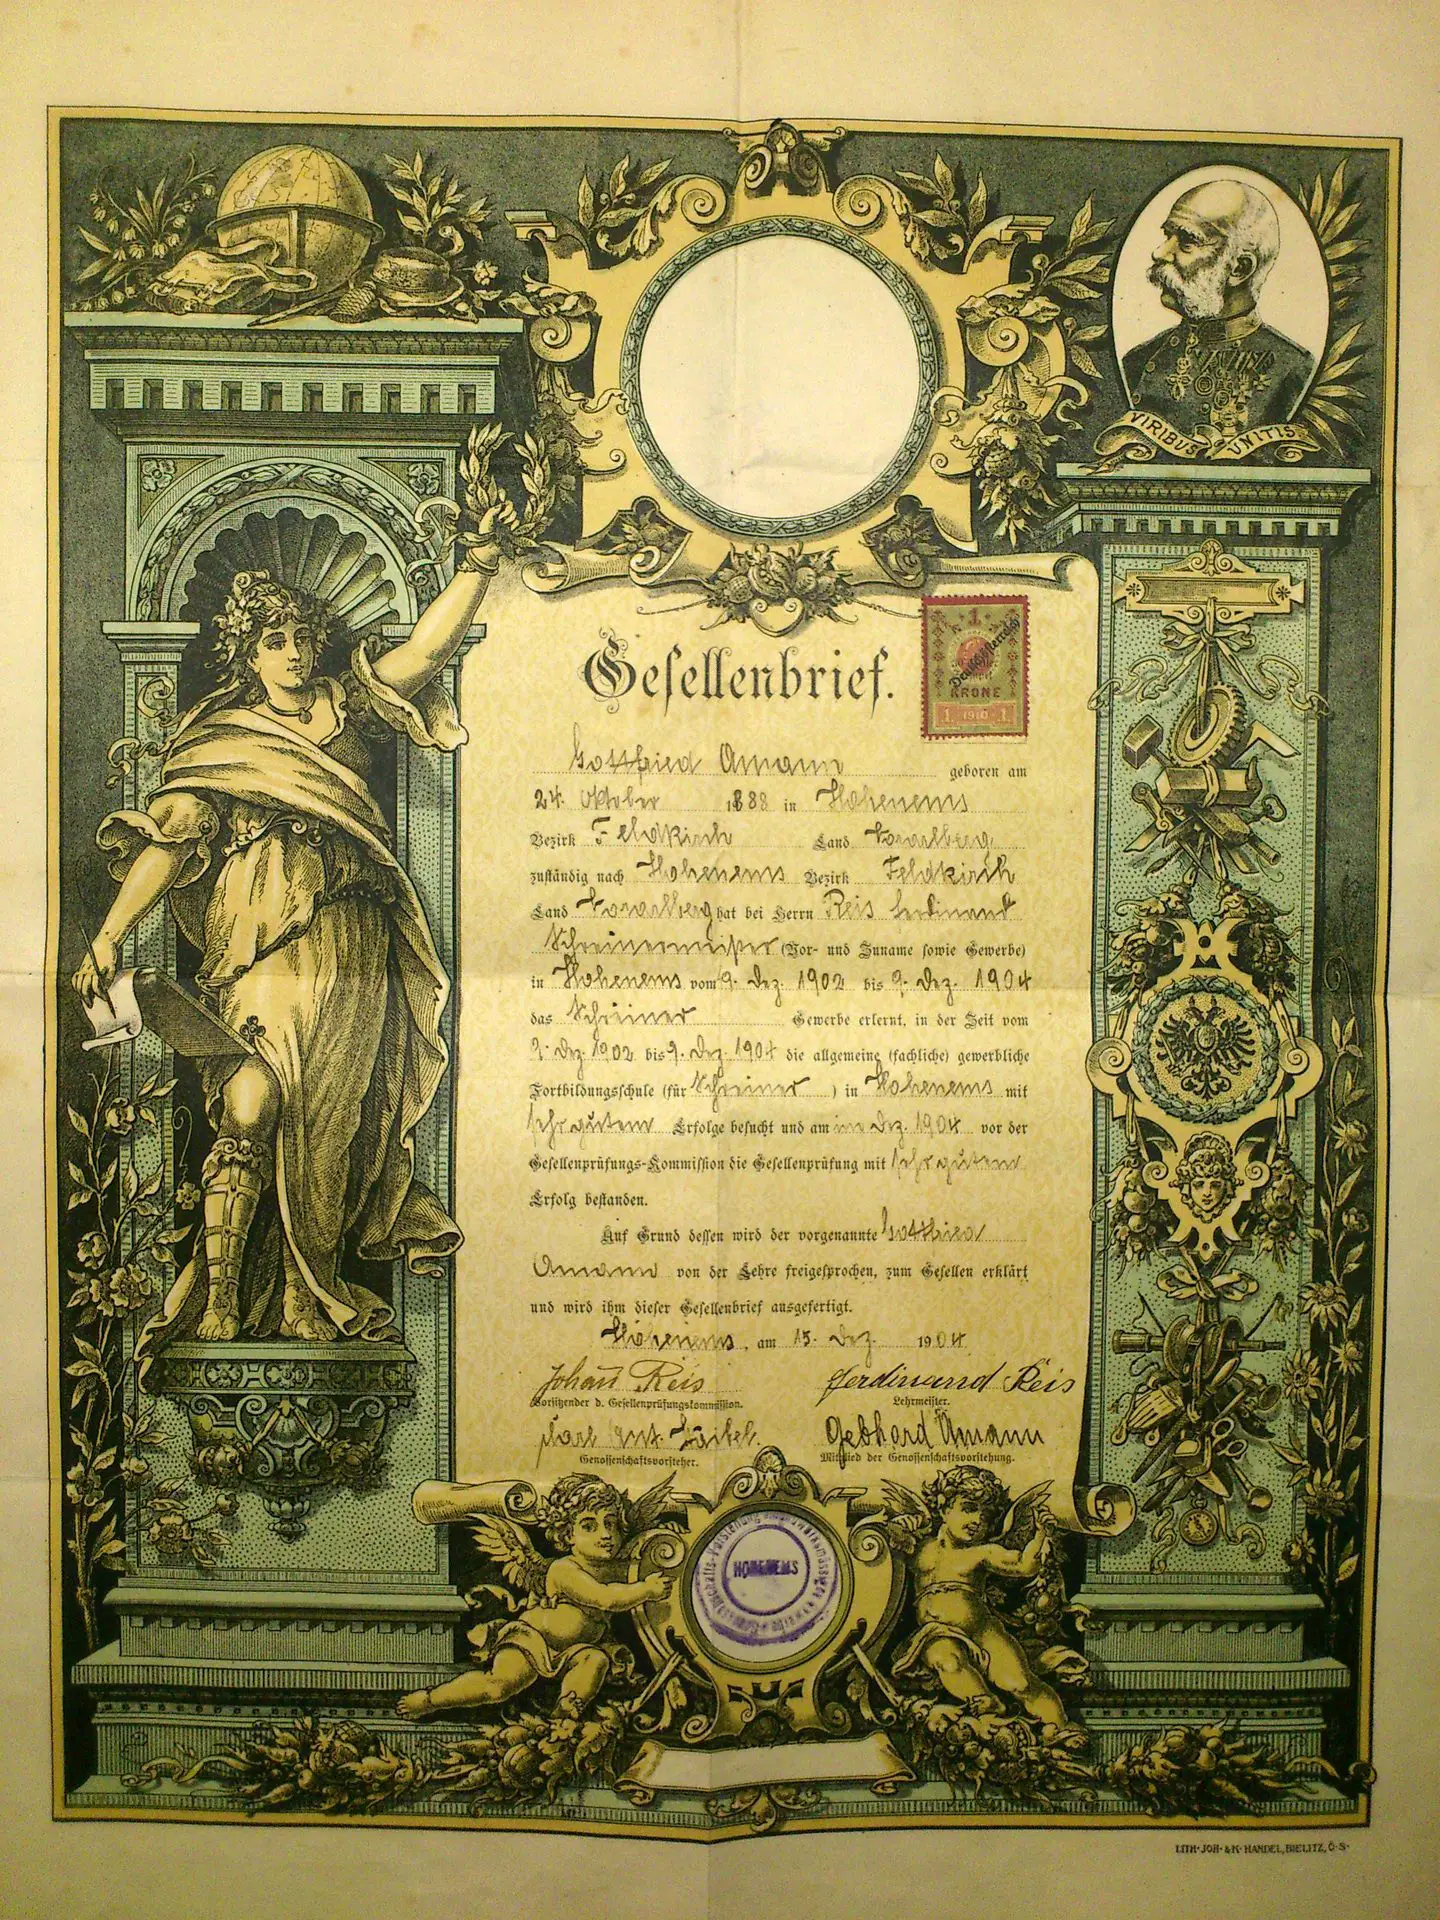 VIRIBUS UNITIS
Gesellenbrief.
1
Deutschösterreich
KRONE
1 1910 1
Gottfried Amann geboren am
24. Oktober 1888 in Hohenems
Bezirk Feldkirch Land Vorarlberg
zuständig nach Hohenems Bezirk Feldkirch
Land Vorarlberg hat bei Herrn Reis Ferdinand
Schreinermeister (Vor- und Zuname sowie Gewerbe)
in Hohenems vom 9. Dez. 1902 bis 9. Dez. 1904
das Schreiner Gewerbe erlernt, in der Zeit vom
9. Dez. 1902 bis 9. Dez. 1904 die allgemeine (fachliche) gewerbliche
Fortbildungsschule (für Schreiner ) in Hohenems mit
sehr gutem Erfolge besucht und am Dez. 1904 vor der
Gesellenprüfungs-Kommission die Gesellenprüfung mit sehr gutem
Erfolg bestanden.
Auf Grund dessen wird der vorgenannte Gottfried
Amann von der Lehre freigesprochen, zum Gesellen erklärt
und wird ihm dieser Gesellenbrief ausgefertigt.
Hohenems, am 15. Dez. 1904
Johann Reis Ferdinand Reis
Vorsitzender d. Gesellenprüfungskommission. Lehrmeister.
Karl Gebhard Amann
Genossenschaftsvorsteher. Mitglied der Genossenschaftsvorstehung.
HOHENEMS
LITH. JOH. & K. HANDEL, BIELITZ, Ö.S.